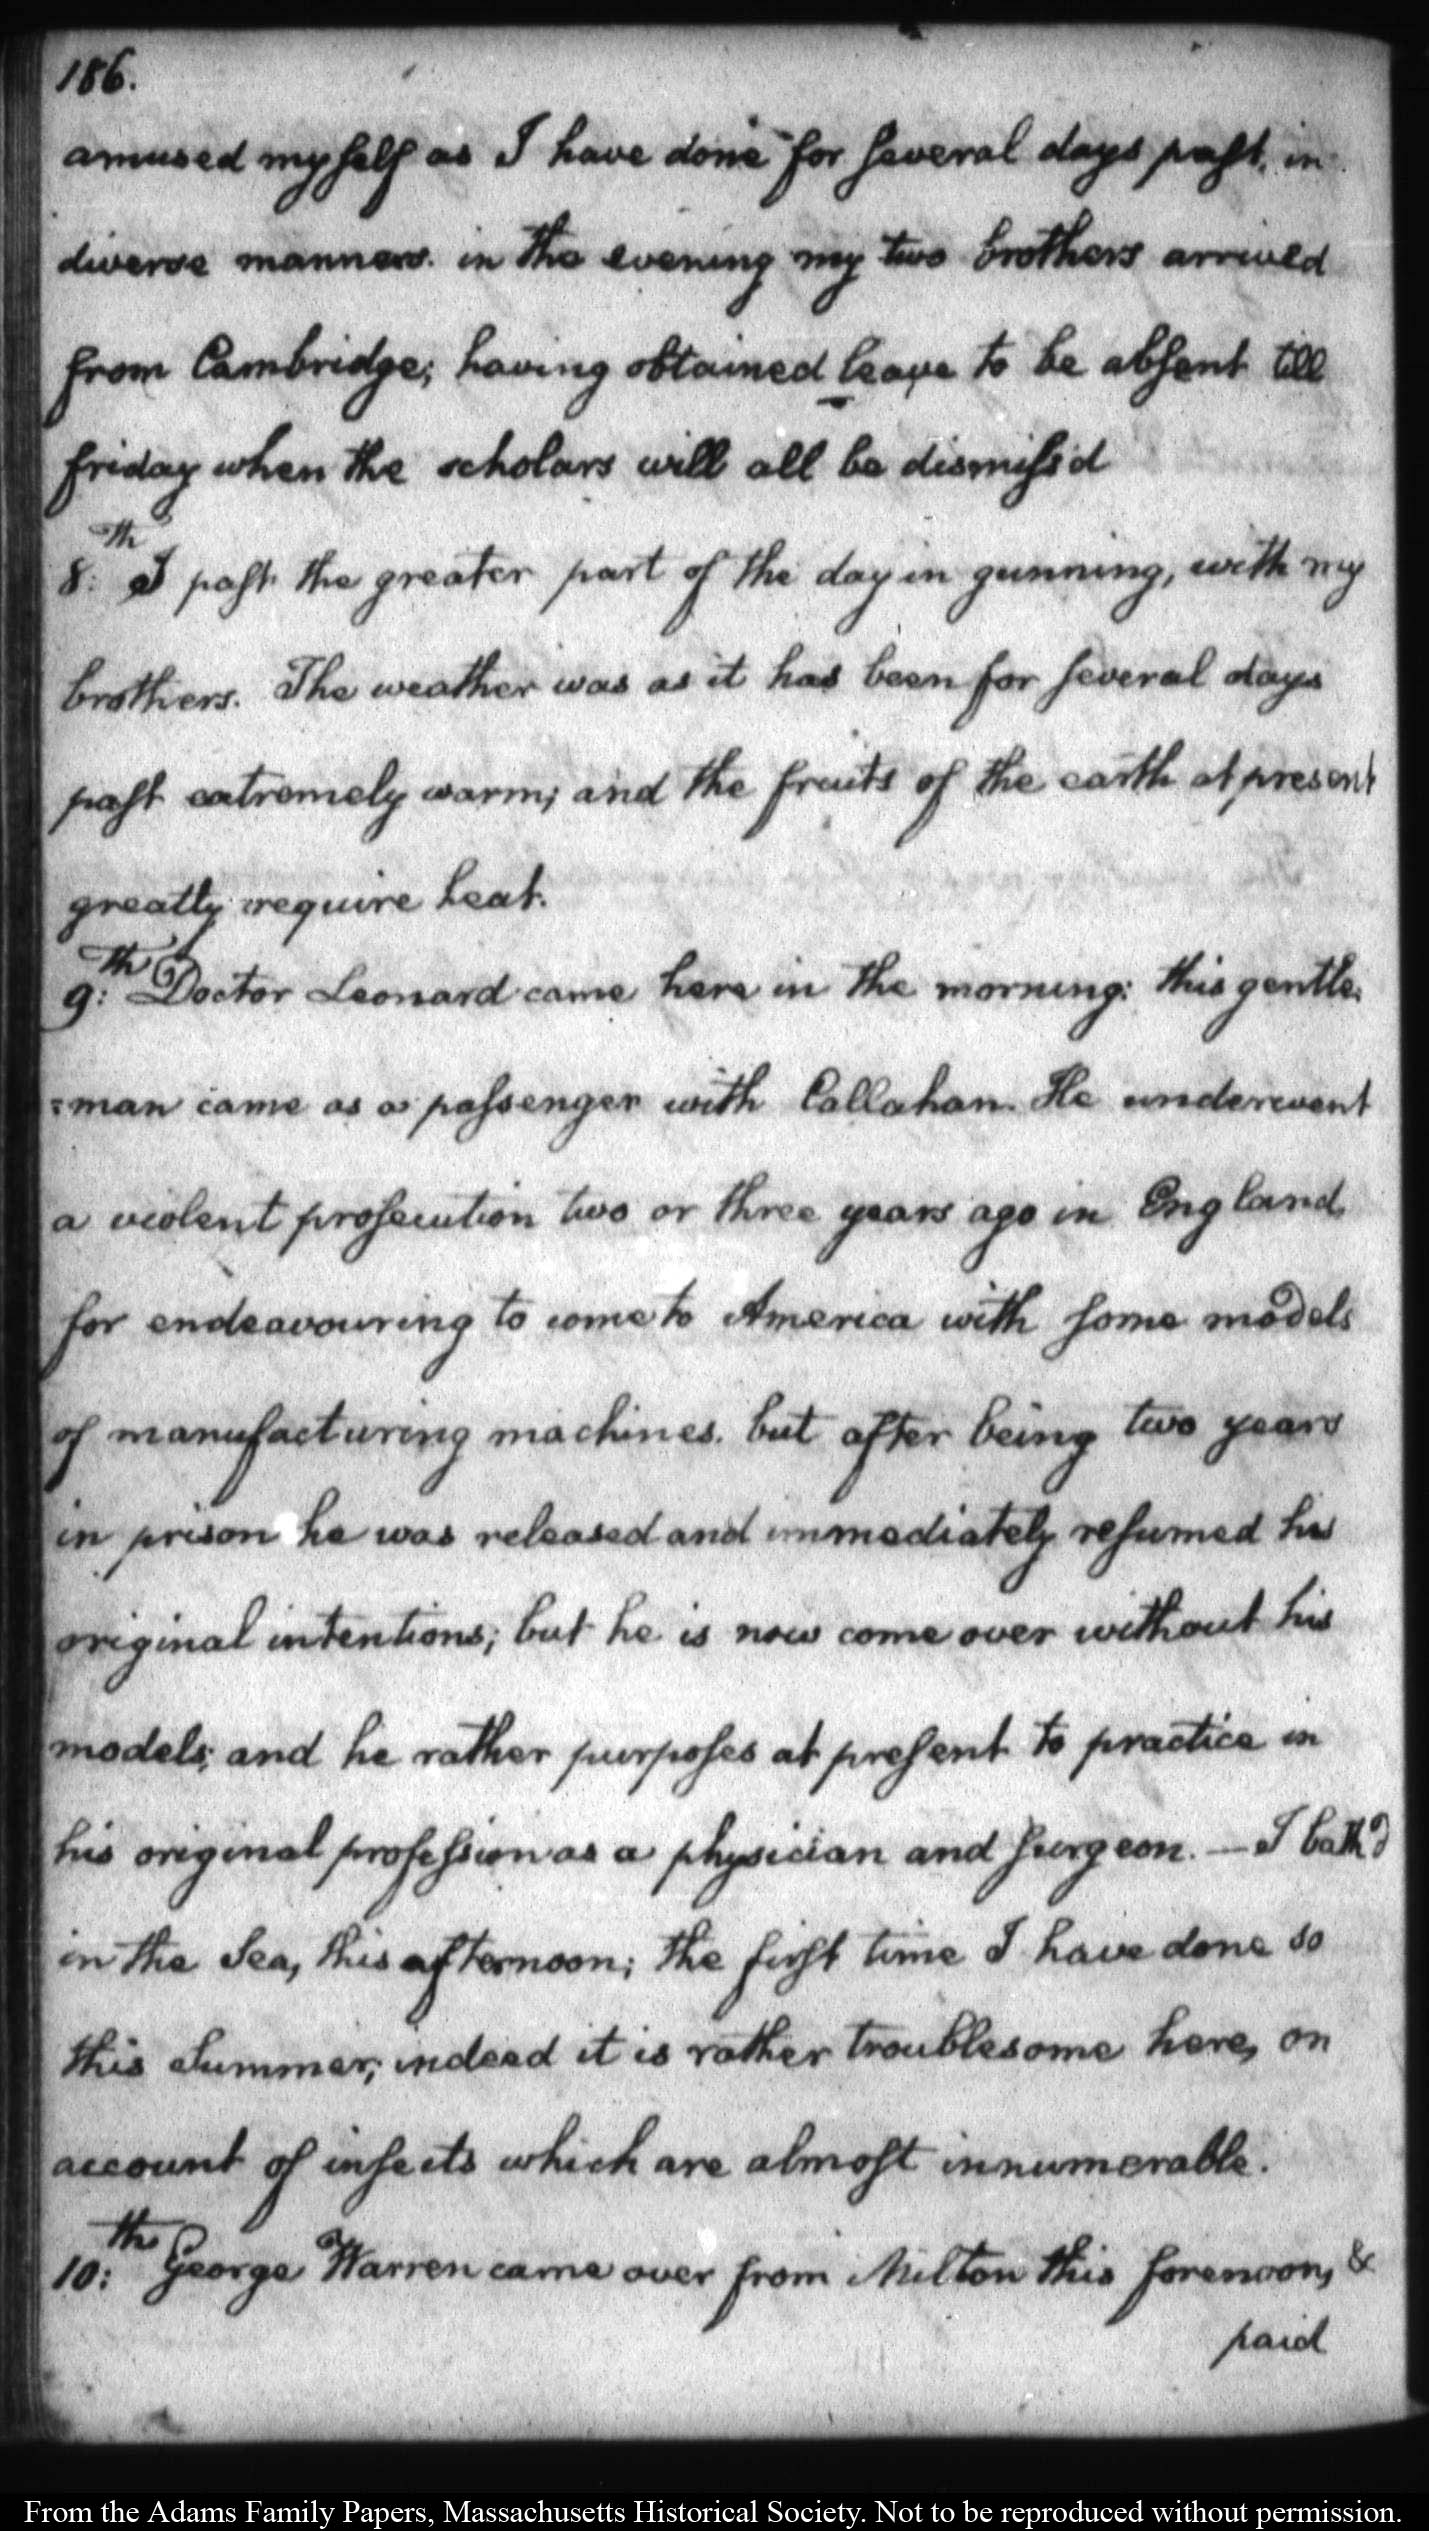 186.
amused myself as I have done for several days past, in
diverse manners. in the evening my two brothers arrived
from Cambridge; having obtained leave to be absent till
friday when the scholars will all be dismiss'd
8:th I past the greater part of the day in gunning, with my
brothers. The weather was as it has been for several days
past extremely warm; and the fruits of the earth at present
greatly require heat.
9:th Doctor Leonard came here in the morning: this gentle:
=man came as a passenger with Callahan. He underwent
a violent prosecution two or three years ago in England,
for endeavouring to come to America with some models
of manufacturing machines. but after being two years
in prison he was released and immediately resumed his
original intentions; but he is now come over without his
models; and he rather purposes at present to practice in
his original profession as a physician and surgeon. — I bath'd
in the Sea, this afternoon; the first time I have done so
this Summer; indeed it is rather troublesome here, on
account of insects which are almost innumerable.
10:th George Warren came over from Milton this forenoon, &
paid
From the Adams Family Papers, Massachusetts Historical Society. Not to be reproduced without permission.